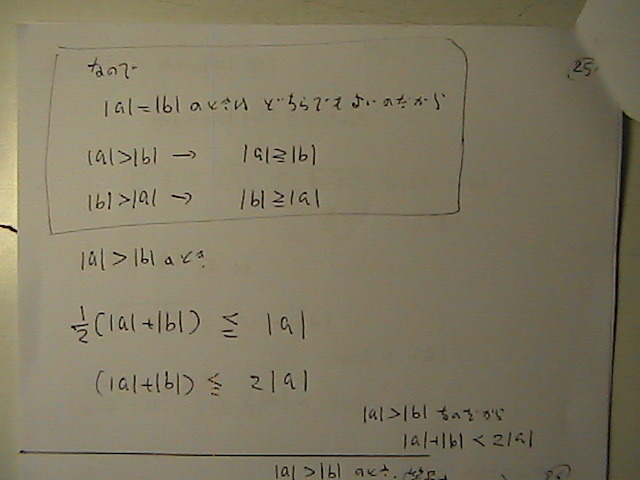 25
なので
|a|=|b| のときは どちらでも よいのだから
|a|>|b| → |a|≧|b|
|b|>|a| → |b|≧|a|
|a|>|b| のとき
1/2(|a|+|b|) ≦ |a|
(|a|+|b|) ≦ 2|a|
|a|>|b| なのだから
|a|+|b| < 2|a|
|a|>|b| のとき